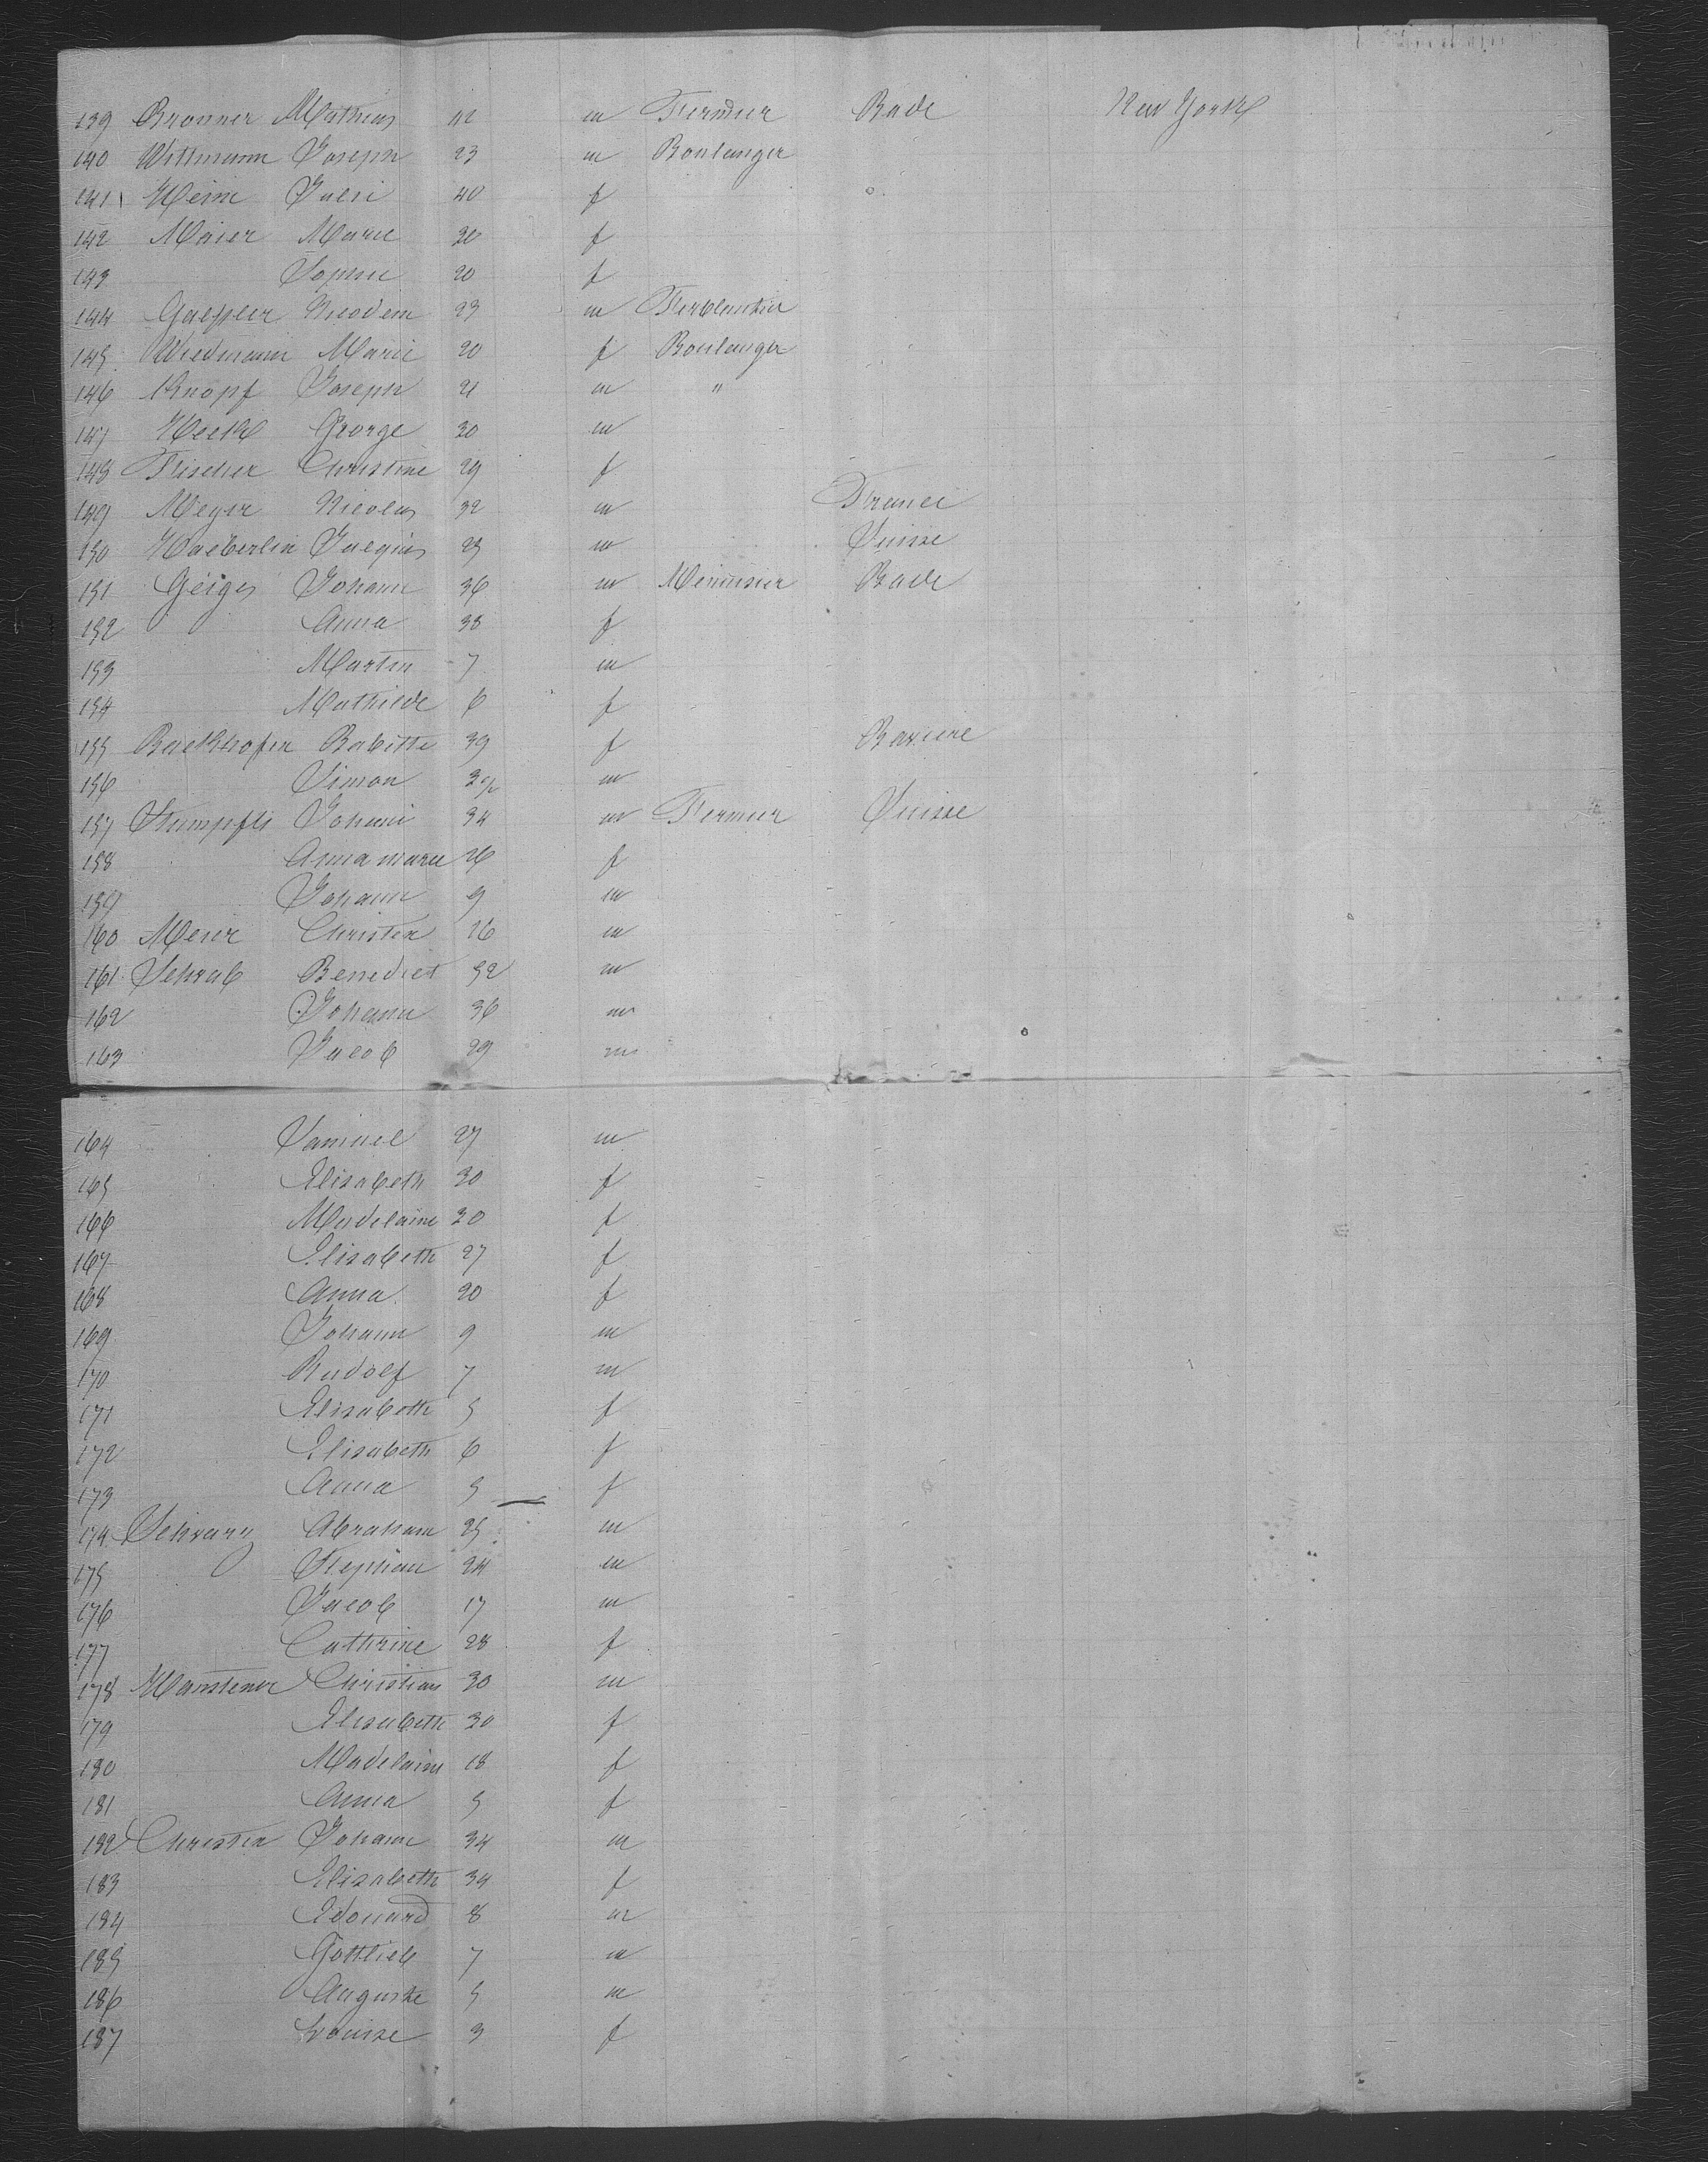 139 Bronner Mathias 42 m Fermier Bade New York
140 Wittmann Joseph 23 m Boulanger
141 Heim 40 f
142 Maier Marie 20 f
143 Sophie 20 f
144 23 m Ferblantier
145 Wiedmann Marie 20 f Boulanger
146 Knopf Joseph 21 m "
147 George 30 m
148 Fischer Christine 29 f
149 Meyer Nicolas 32 m France
150 Haeberlin Jaques 23 m Suisse
151 Geiges Johann 36 m Menuisier Bade
152 Anna 38 f
153 Martin 7 m
154 Mathilde 6 f
155 Backhofer Babitte 39 f Baviere
156 Simon m
157 Stumpfli Johann 34 m Fermier Suisse
158 Anna marie 26 f
159 Johann 9 m
160 Meier Christen 26 m
161 Schwab Benedict 52 m
162 Johann 36 m
163 Jacob 29 m
164 Samuel 27 m
165 Elisabeth 30 f
166 Madelaine 30 f
167 Elisabeth 27 f
168 Anna 20 f
169 Johann 9 m
170 Rudolf 7 m
171 Elisabeth 5 f
172 Elisabeth 6 f
173 Anna 5 f
174 Schwarz Abraham 25 m
175 Stephan 24 m
176 Jacob 17 m
177 Cathrine 28 f
178 Christian 30 m
179 Elisabeth 30 f
180 Madelaine 18 f
181 Anna 5 f
182 Christen Johann 34 m
183 Elisabeth 34 f
184 Edouard 8 m
185 Gottlieb 7 m
186 Auguste 5 m
187 Louise 3 f